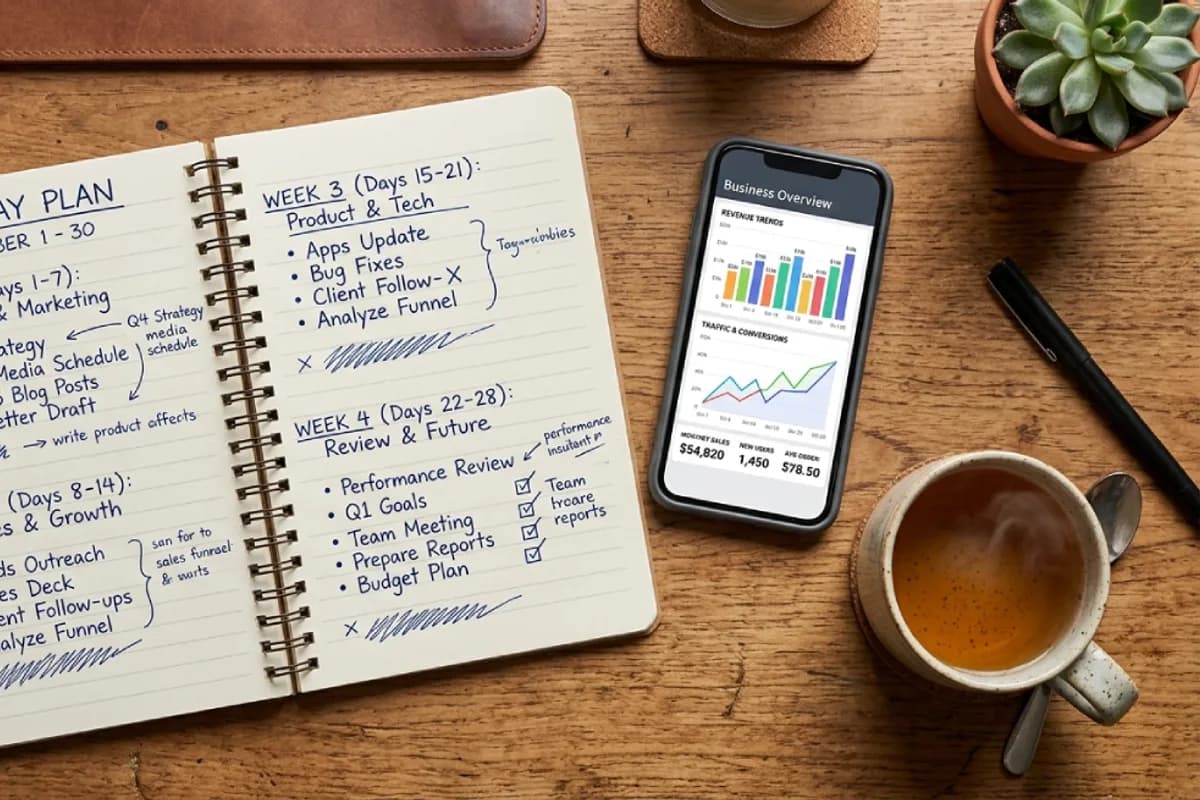 AY PLAN
BER 1 - 30
ays 1-7):
& Marketing
ategy
Q4 Strategy
media
schedule
Media Schedule
Blog Posts
etter Draft
→ write product affects
(Days 8-14):
es & Growth
ds Outreach
es Deck
ent Follow-ups
alyze Funnel
san for to
sales funnel
&
WEEK 3 (Days 15-21):
Product & Tech
• Apps Update
• Bug Fixes
• Client Follow-X
• Analyze Funnel
WEEK 4 (Days 22-28):
Review & Future
performance
• Performance Review
• Q1 Goals
• Team Meeting
• Prepare Reports
• Budget Plan
Team
reports
Business Overview
REVENUE TRENDS
TRAFFIC & CONVERSIONS
SALES
$54,820
NEW USERS
1,450
AVG ORDER:
$78.50